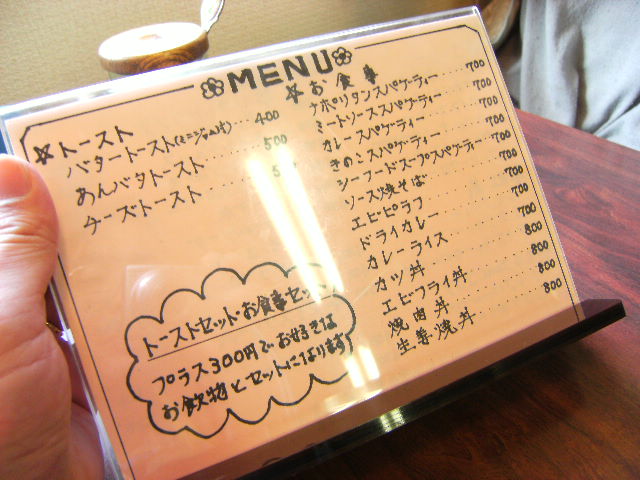 MENU
☆トースト
バタートースト(ミニジャム付)……400
あんバタトースト……500
チーズトースト……
☆お食事
ナポリタンスパゲーティー……700
ミートソーススパゲーティー……700
カレースパゲーティー……700
きのこスパゲーティー……700
シーフードスープスパゲーティー……700
ソース焼そば……700
エビピラフ……700
ドライカレー……700
カレーライス……700
カツ丼……800
エビフライ丼……800
焼肉丼……800
生姜焼丼……800
トーストセット・お食事セット
プラス300円でお好きな
お飲物とセットになります